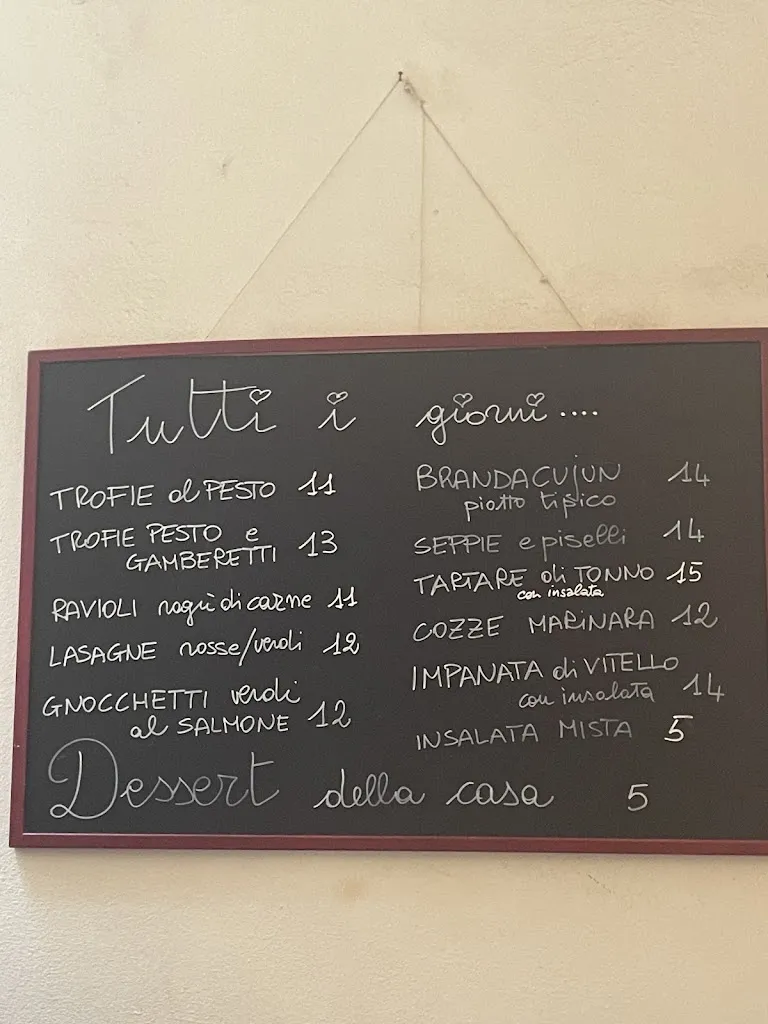 Tutti i giorni....
TROFIE al PESTO 11
TROFIE PESTO e
GAMBERETTI 13
RAVIOLI ragù di carne 11
LASAGNE rosse/verdi 12
GNOCCHETTI verdi
al SALMONE 12
BRANDACUJUN 14
piatto tipico
SEPPIE e piselli 14
TARTARE di TONNO 15
con insalata
COZZE MARINARA 12
IMPANATA di VITELLO
con insalata 14
INSALATA MISTA 5
Dessert della casa 5